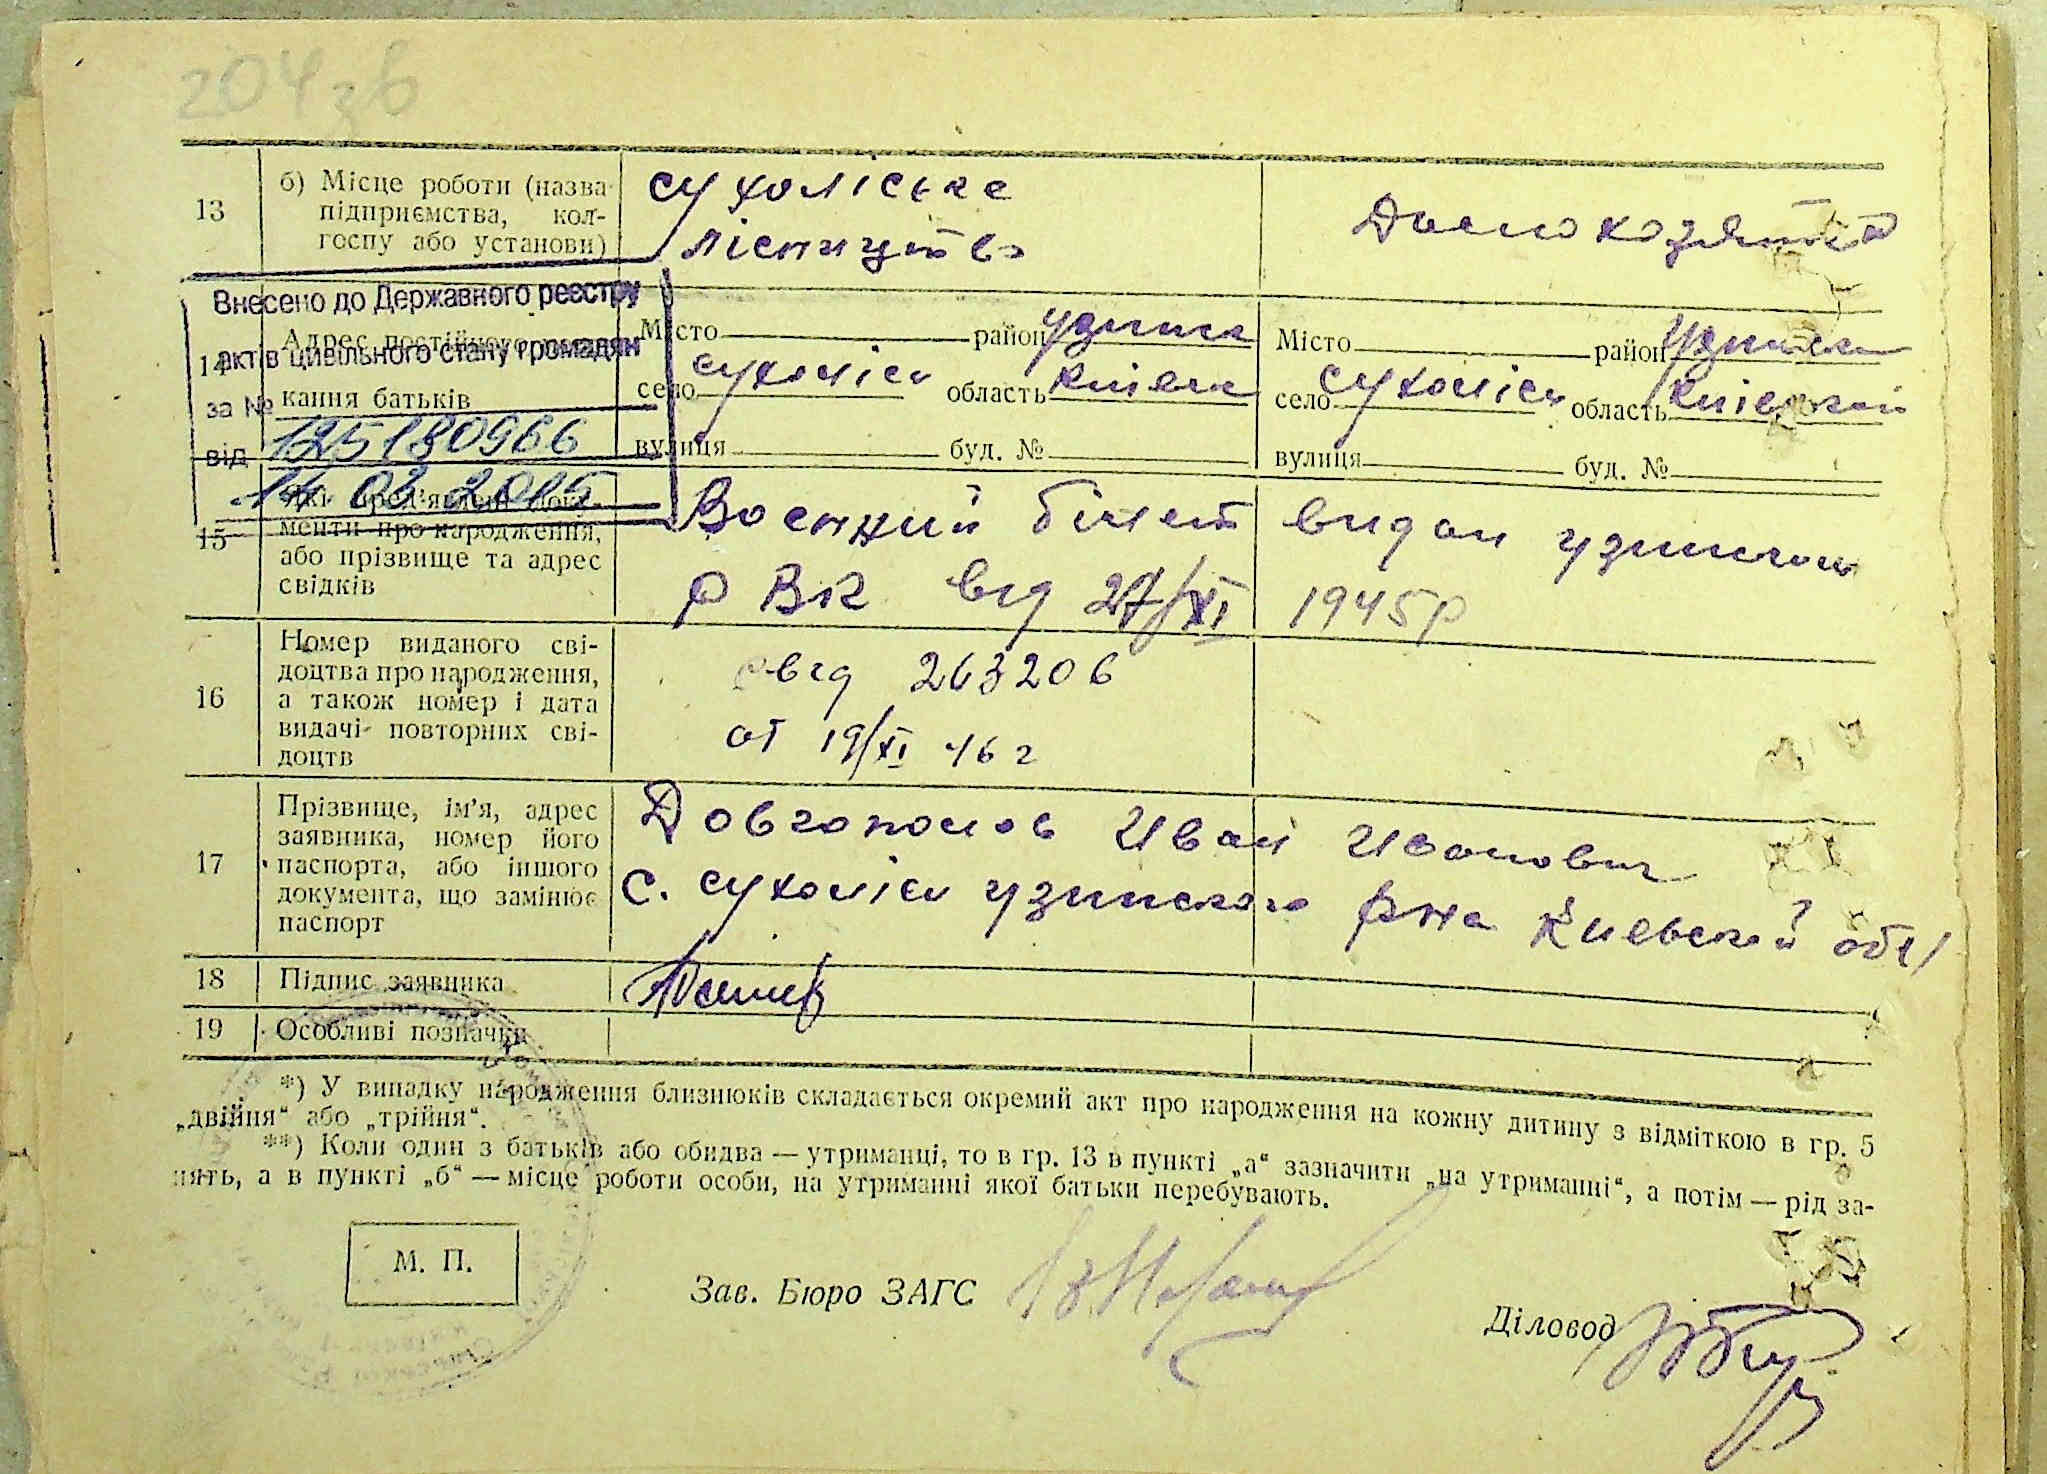 204 зв
13 б) Місце роботи (назва підприємства, колгоспу або установи) сухоліське лісництво Домохозяйка
Внесено до Державного реєстру
актів цивільного стану громадян
за № 125180966
від 14 03 2015
14 Адрес постійного
кання батьків
Місто район узинск Місто район Узинский
село сухоліси область Киівск село сухоліси область Київский
вулиця буд. № вулиця буд. №
15 Які пред'явлені документи про народження, або прізвище та адрес свідків
Воєнний білет видан узинским
РВК від 27/XI 1945р
16 Номер виданого свідоцтва про народження, а також номер і дата видачі повторних свідоцтв
свід 263206
от 19/XI 46 г
17 Прізвище, ім'я, адрес заявника, номер його паспорта, або іншого документа, що замінює паспорт
Довгополов Иван Иванович
с. сухоліси узинского р-на Киевской обл
18 Підпис заявника
19 Особливі позначки
*) У випадку народження близнюків складається окремий акт про народження на кожну дитину з відміткою в гр. 5
„двійня“ або „трійня“.
**) Коли один з батьків або обидва — утриманці, то в гр. 13 в пункті „а“ зазначити „на утриманні“, а потім — рід за-
нять, а в пункті „б“ — місце роботи особи, на утриманні якої батьки перебувають.
М. П.
Зав. Бюро ЗАГС
Діловод